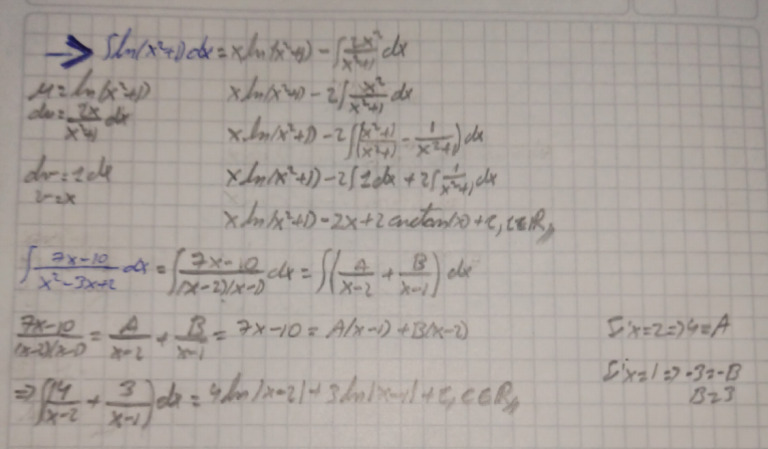 → ∫ln(x²+1)dx = x ln(x²+1) - ∫ 2x²/(x²+1) dx
u = ln(x²+1)
du = 2x/(x²+1) dx
dv = 1dx
v = x
x ln(x²+1) - 2∫ x²/(x²+1) dx
x ln(x²+1) - 2∫((x²+1)/(x²+1) - 1/(x²+1))dx
x ln(x²+1) - 2∫1dx + 2∫ 1/(x²+1) dx
x ln(x²+1) - 2x + 2 arctan(x) + c, c∈ℝ //
∫ (7x-10)/(x²-3x+2) dx = ∫ (7x-10)/((x-2)(x-1)) dx = ∫(A/(x-2) + B/(x-1)) dx
(7x-10)/((x-2)(x-1)) = A/(x-2) + B/(x-1) = 7x-10 = A(x-1) + B(x-2)
Si x=2 => 4=A
Si x=1 => -3=-B
B=3
=> ∫(4/(x-2) + 3/(x-1))dx = 4ln|x-2| + 3ln|x-1| + c, c∈ℝ //